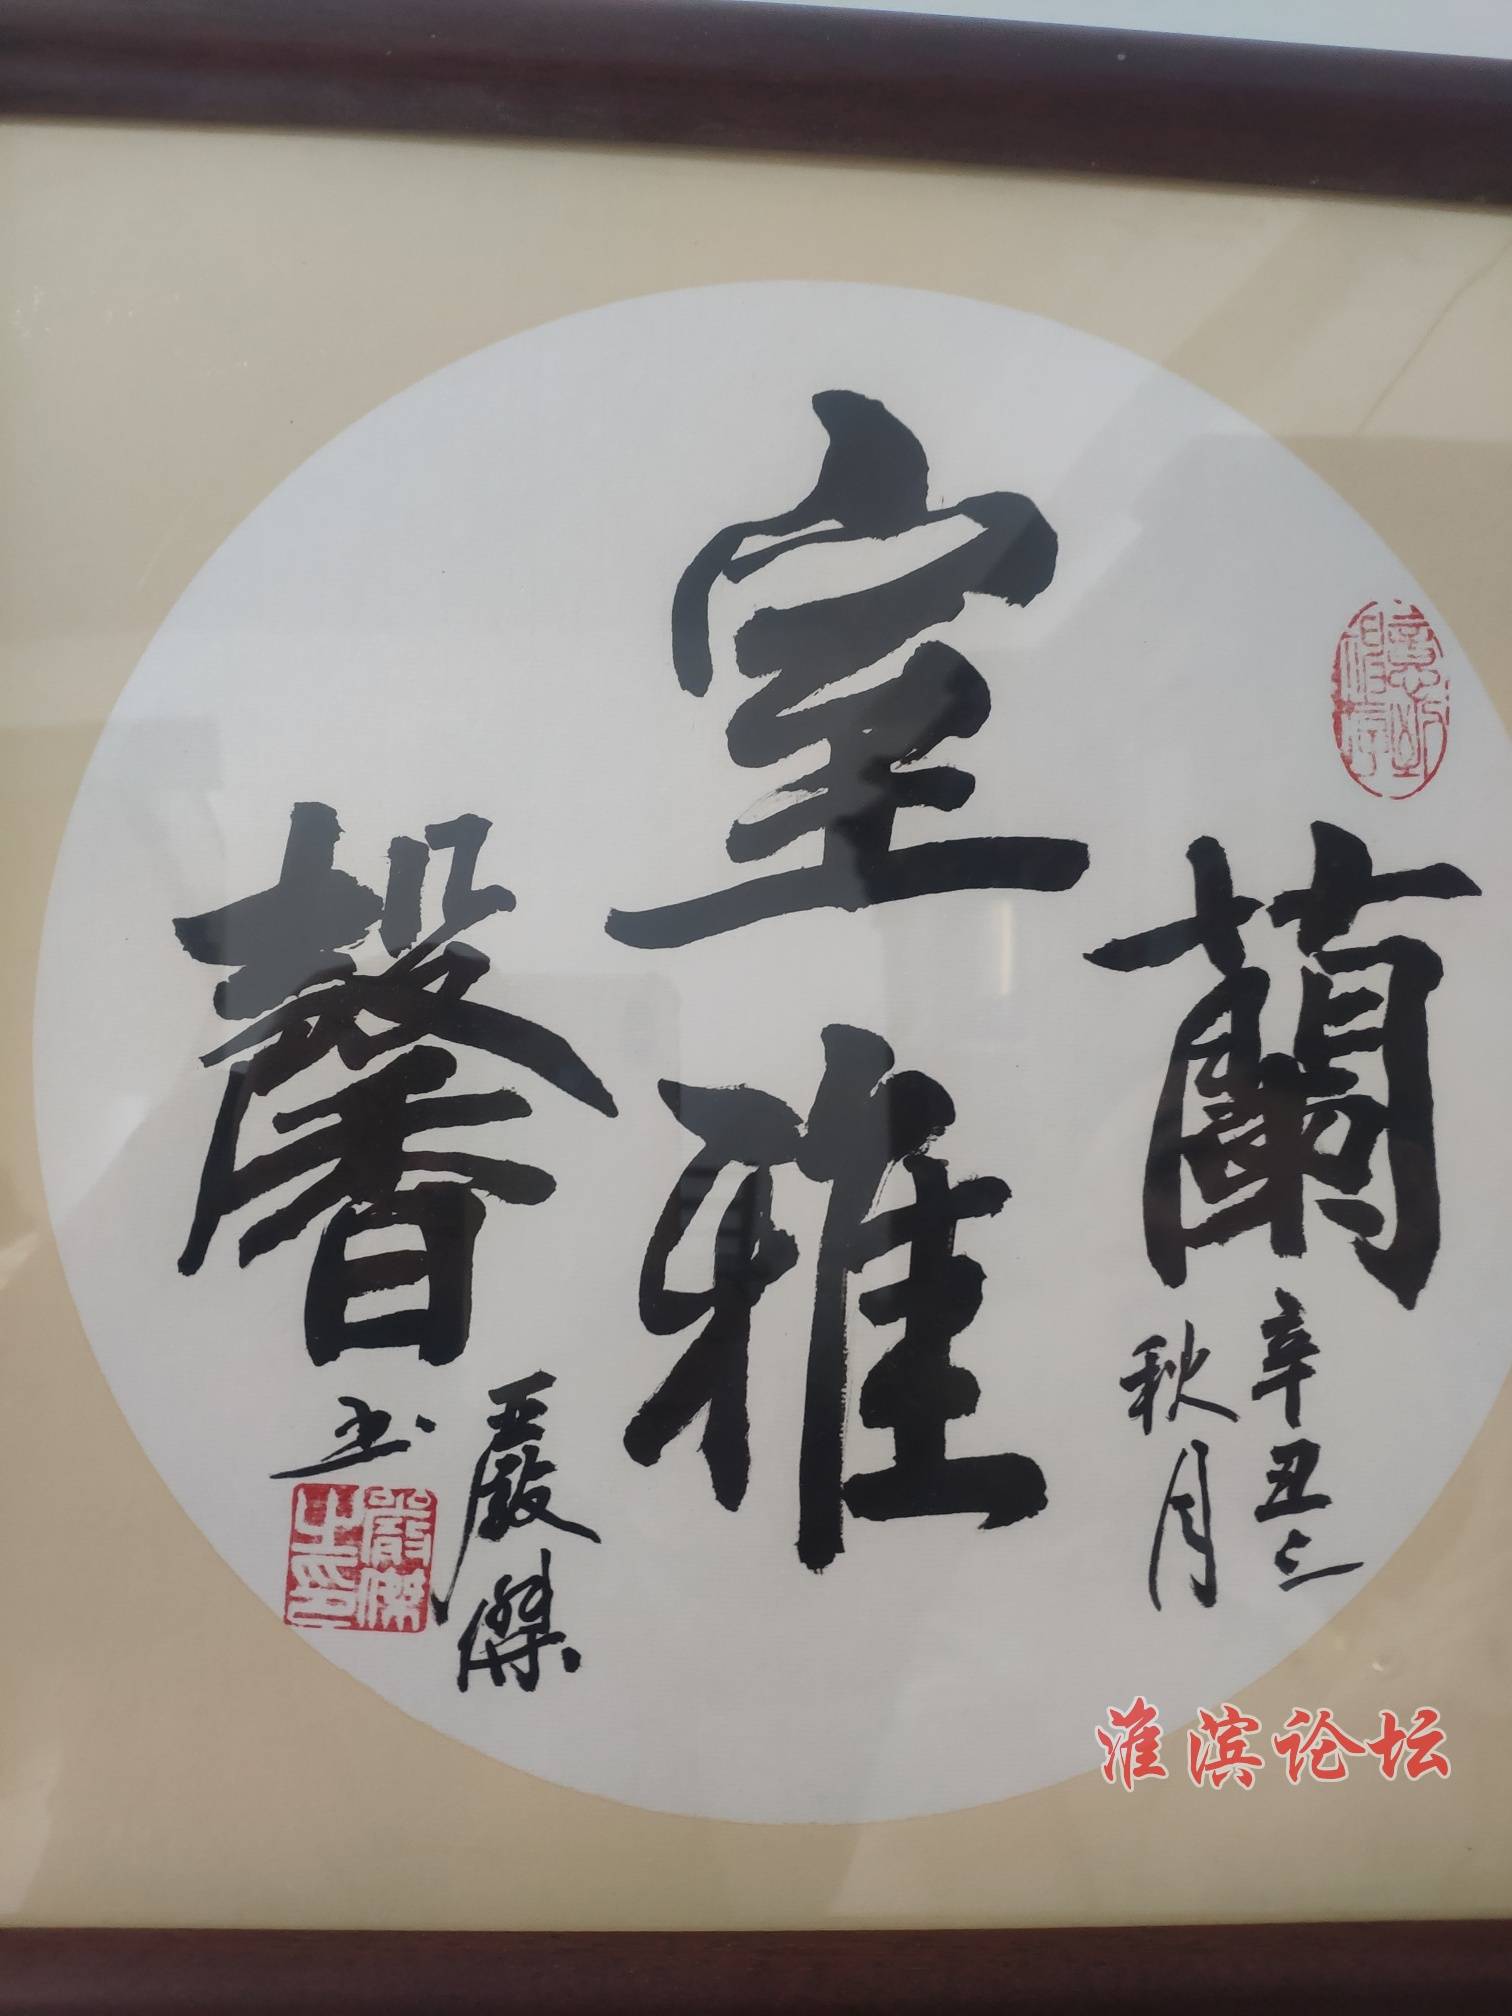 蘭
室雅
馨
辛丑之
秋月
嚴傑
书
嚴傑
之印
淮滨论坛